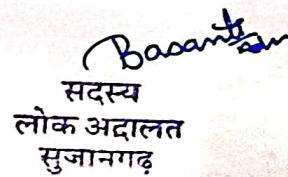 Basant
सदस्य
लोक अदालत
सुजानगढ़